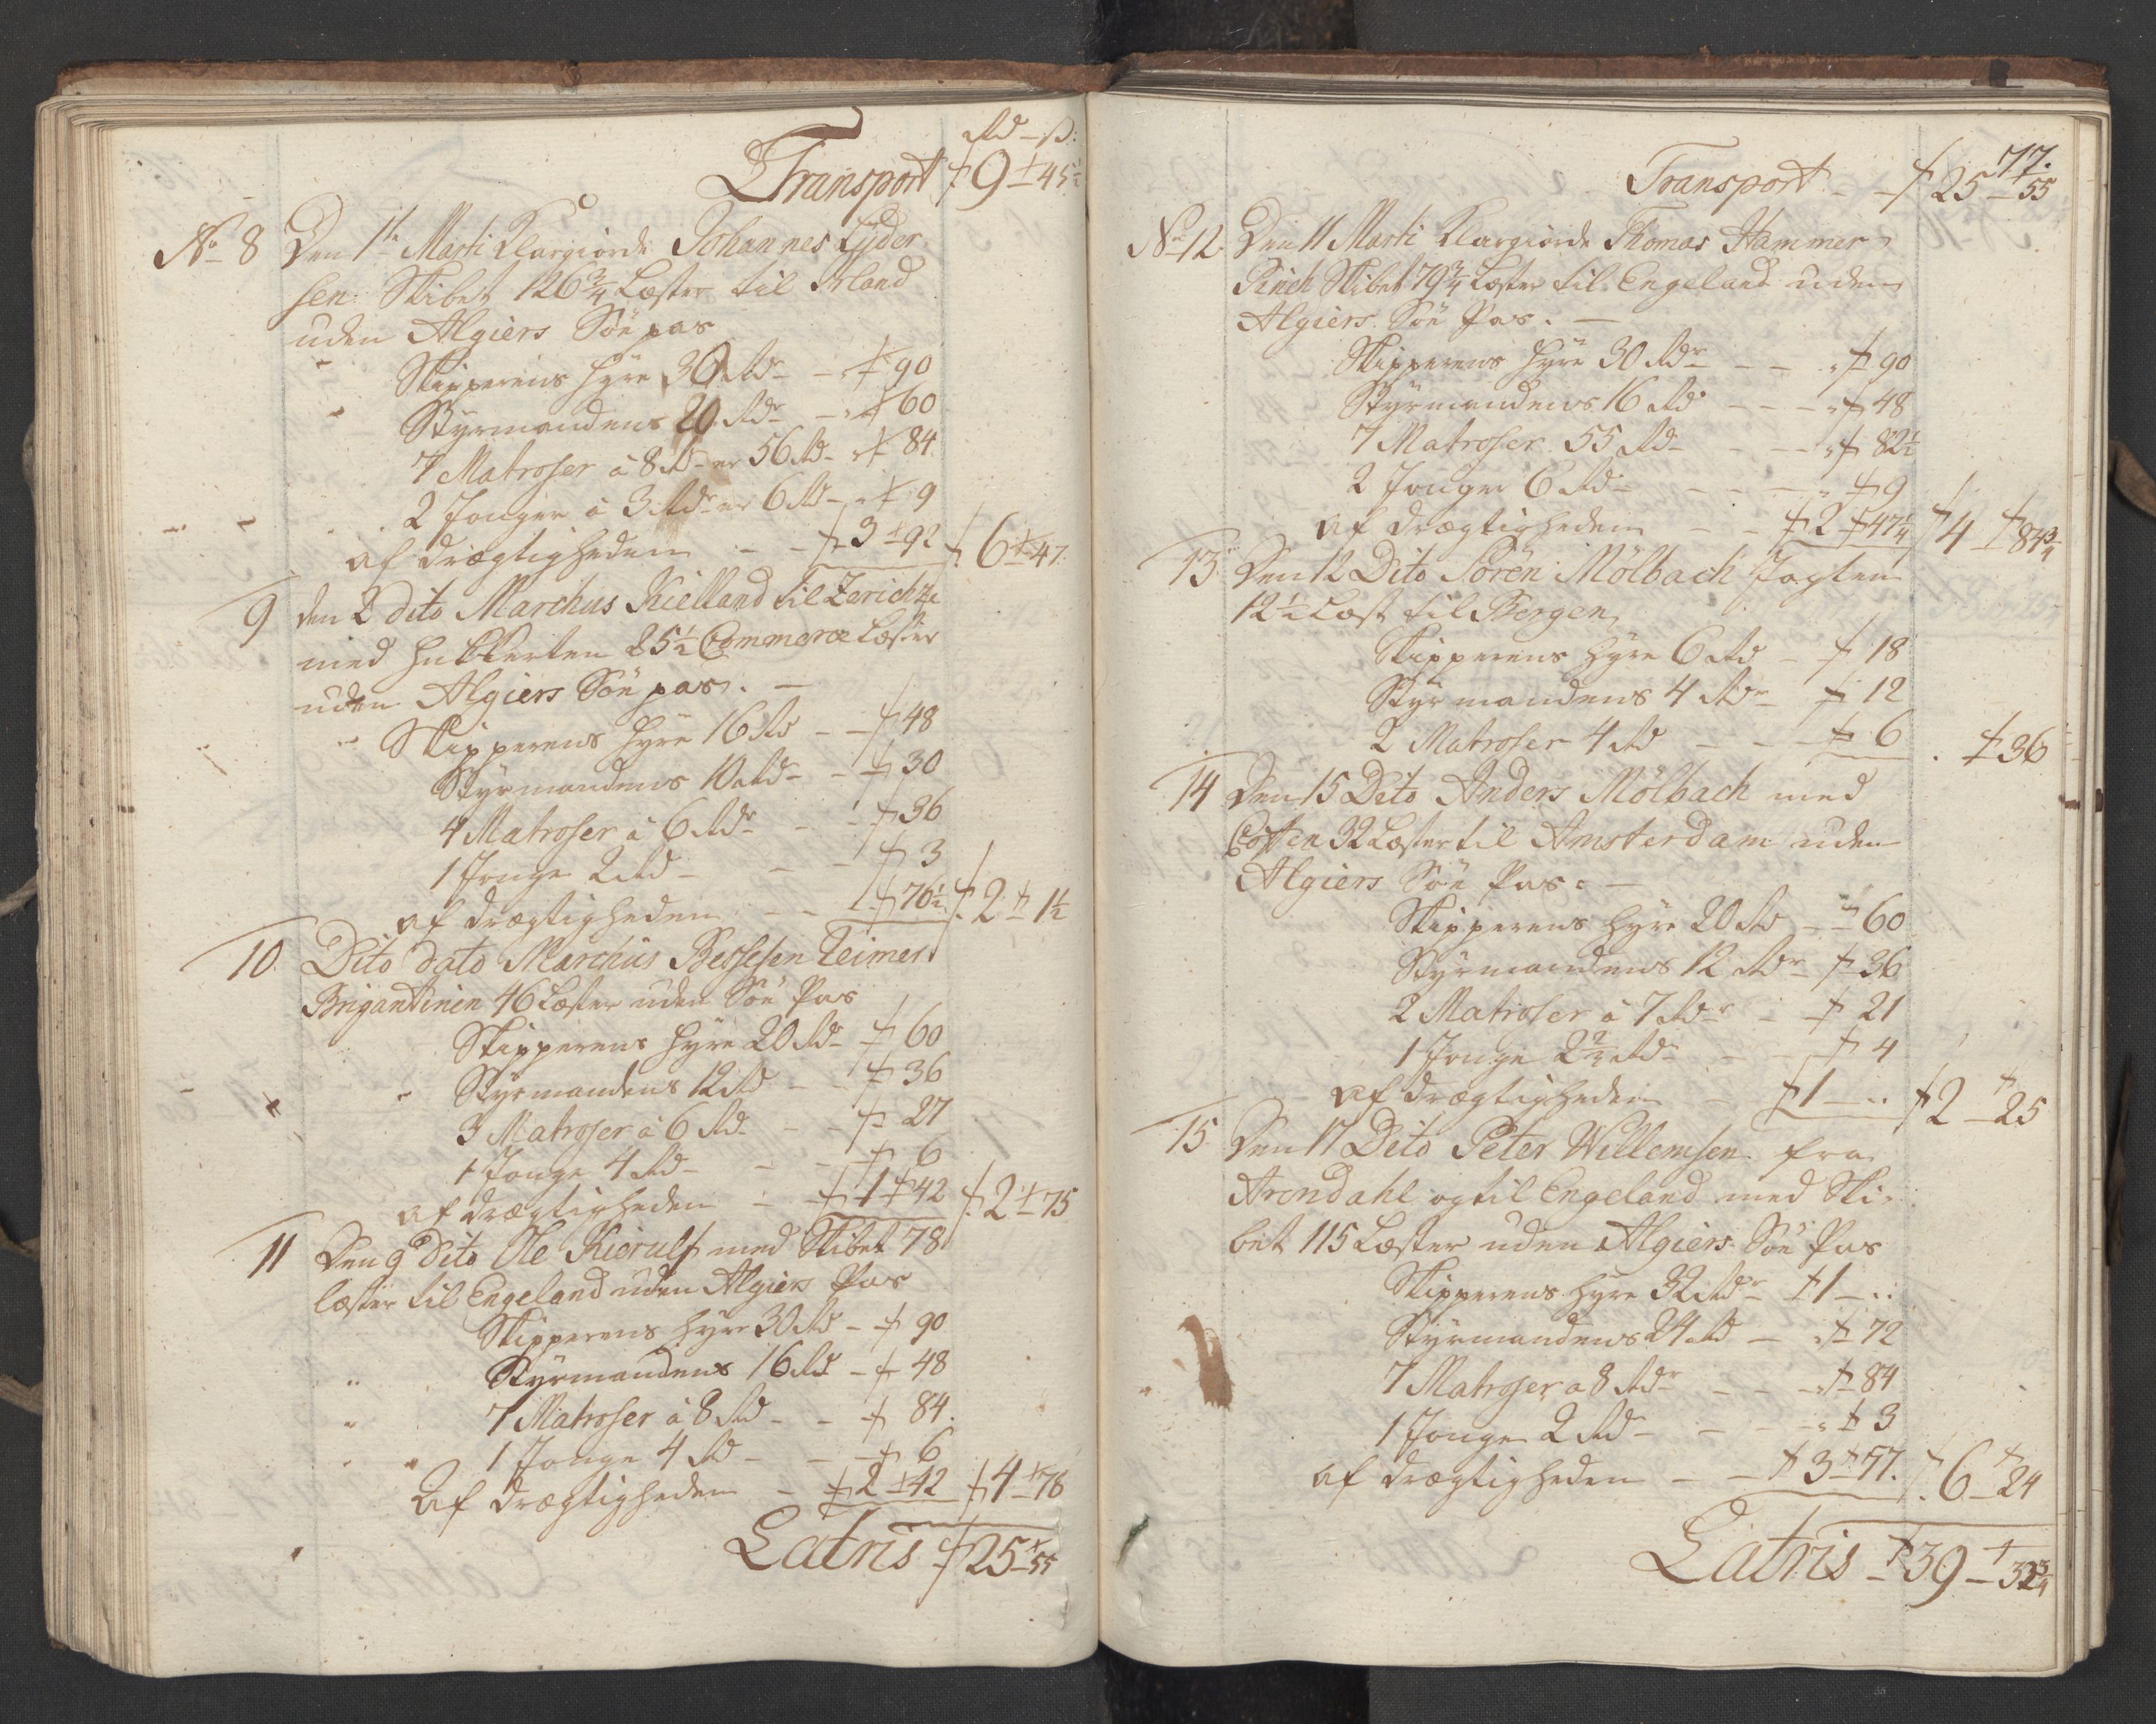 Rd - ß:
Transport 9 - 45½
No 8 Den 1te Marti Klargiorde Johannes Lyder
sen Skibet 126¾ Læster til Irland
uden Algiers Söe pas
Skipperens hyre 30 Rdr - 90
Styrmandens 20 Rdr - 60
7 Matroser à 8 Rd er 56 Rd - 84
2 Jonger à 3 Rdr er 6 Rd - 9
af drægtigheden - - 3 - 92 6 - 47
9 den 2 dito Marchus Kielland til
med Hukkerten 25½ Commerce Læster
uden Algiers Söe pas. -
Skipperens hyre 16 Rd - - 48
Styrmandens 10 Rdr - - 30
4 Matroser à 6 Rdr - - 36
1 Jonge 2 Rd - - - 3
af drægtigheden - - 76½ 2 - 1½
10 Dito dato Marchus Bessesen Reimers
Brigantinen 46 Læster uden Söe Pas
Skipperens hyre 20 Rdr 60
Styrmandens 12 Rd - - 36
3 Matroser à 6 Rd - - 27
1 Jonge 4 Rd - - - 6
af drægtigheden - - 1 - 42 2 - 75
11 Den 9 Dito Ole Kierulf med Skibet 78
læster til Engeland uden Algiers Pas
Skipperens hyre 30 Rd - 90
Styrmandens 16 Rd - 48
7 Matroser à 8 Rd - - 84.
1 Jonge 4 Rd - - 6
Af drægtigheden - 2 - 42 4 - 78
Latris 25 - 55
77.
Transport - - 25 - 55
No 12 Den 11 Marti Klargiorde Thomas Hammer
Pinch Skibet 79¾ Læster til Engeland uden
Algiers Söe Pas. -
Skipperens hyre 30 Rdr - - 90
Styrmandens 16 Rd - - - 48
7 Matroser 55 Rd - - - 82½
2 Jonger 6 Rd - - - 9
af drægtigheden - - 2 - 47¼ 4 - 84¾
13 Den 12 Dito Sören Mölbach Jagten
12½ Læst til Bergen
Skipperens hyre 6 Rd - 18
Styrmandens 4 Rdr - 12
2 Matroser 4 Rd - - - 6 . 36
14 Den 15 Dito Anders Mölbach med
32 Læster til Amsterdam uden
Algiers Söe Pas: -
Skipperens hyre 20 Rd - - 60
Styrmandens 12 Rdr 36
2 Matroser à 7 Rdr - - 21
1 Jonge Rd - - 4
af drægtigheden - 1 - .. 2 - 25
15 Den 17 Dito Peter Willemsen fra
Arendahl og til Engeland med Ski-
bet 115 Læster uden Algiers Söe Pas
Skipperens hyre 32 Rdr 1 - ..
Styrmandens 24 Rd - 72
7 Matroser a 8 Rdr - - - 84
1 Jonge 2 Rd - - - 3
af drægtigheden - - 3 - 57. 6 - 24
Latris - 39 - 32¾